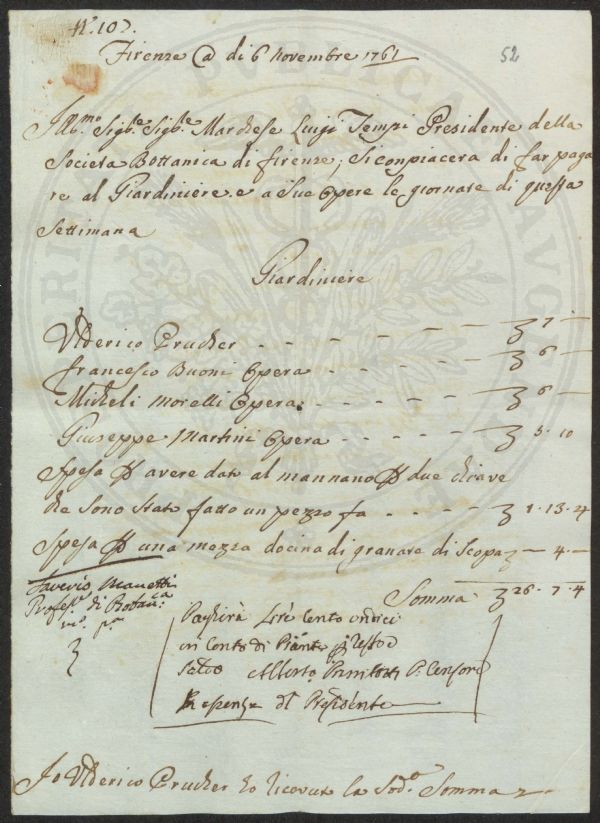 Nº. 107.
52
Firenze @ di 6 novembre 1761
Ill:mo Sigre Sigre Marchese Luigi Tempi Presidente della
Societa Bottanica di firenze, Si conpiacera di far paga
re al Giardiniere e a Sue Opere le giornate di questa
Settimana
Giardiniere
Ulderico Prucher - - - - - - 7 -
francesco Buoni Opera - - - - 6 -
Micheli Morelli Opera - - - 6 -
Giuseppe Martini Opera - - - - 5 . 10
Spesa avere dato al mannano due chiave
che sono state fatto un pezzo fa - - - - 1 . 13 . 4
Spesa una mezza docina di granate di Scopa - 4 . -
Somma 26 . 7 . 4
Saverio Manetti
Profess.e di Botan:ca
Pagherà Lire Cento undici
in Conto di
Alberto P. Censore
del Presidente
Io Ulderico Prucher ho ricevuto la Sod.a Somma